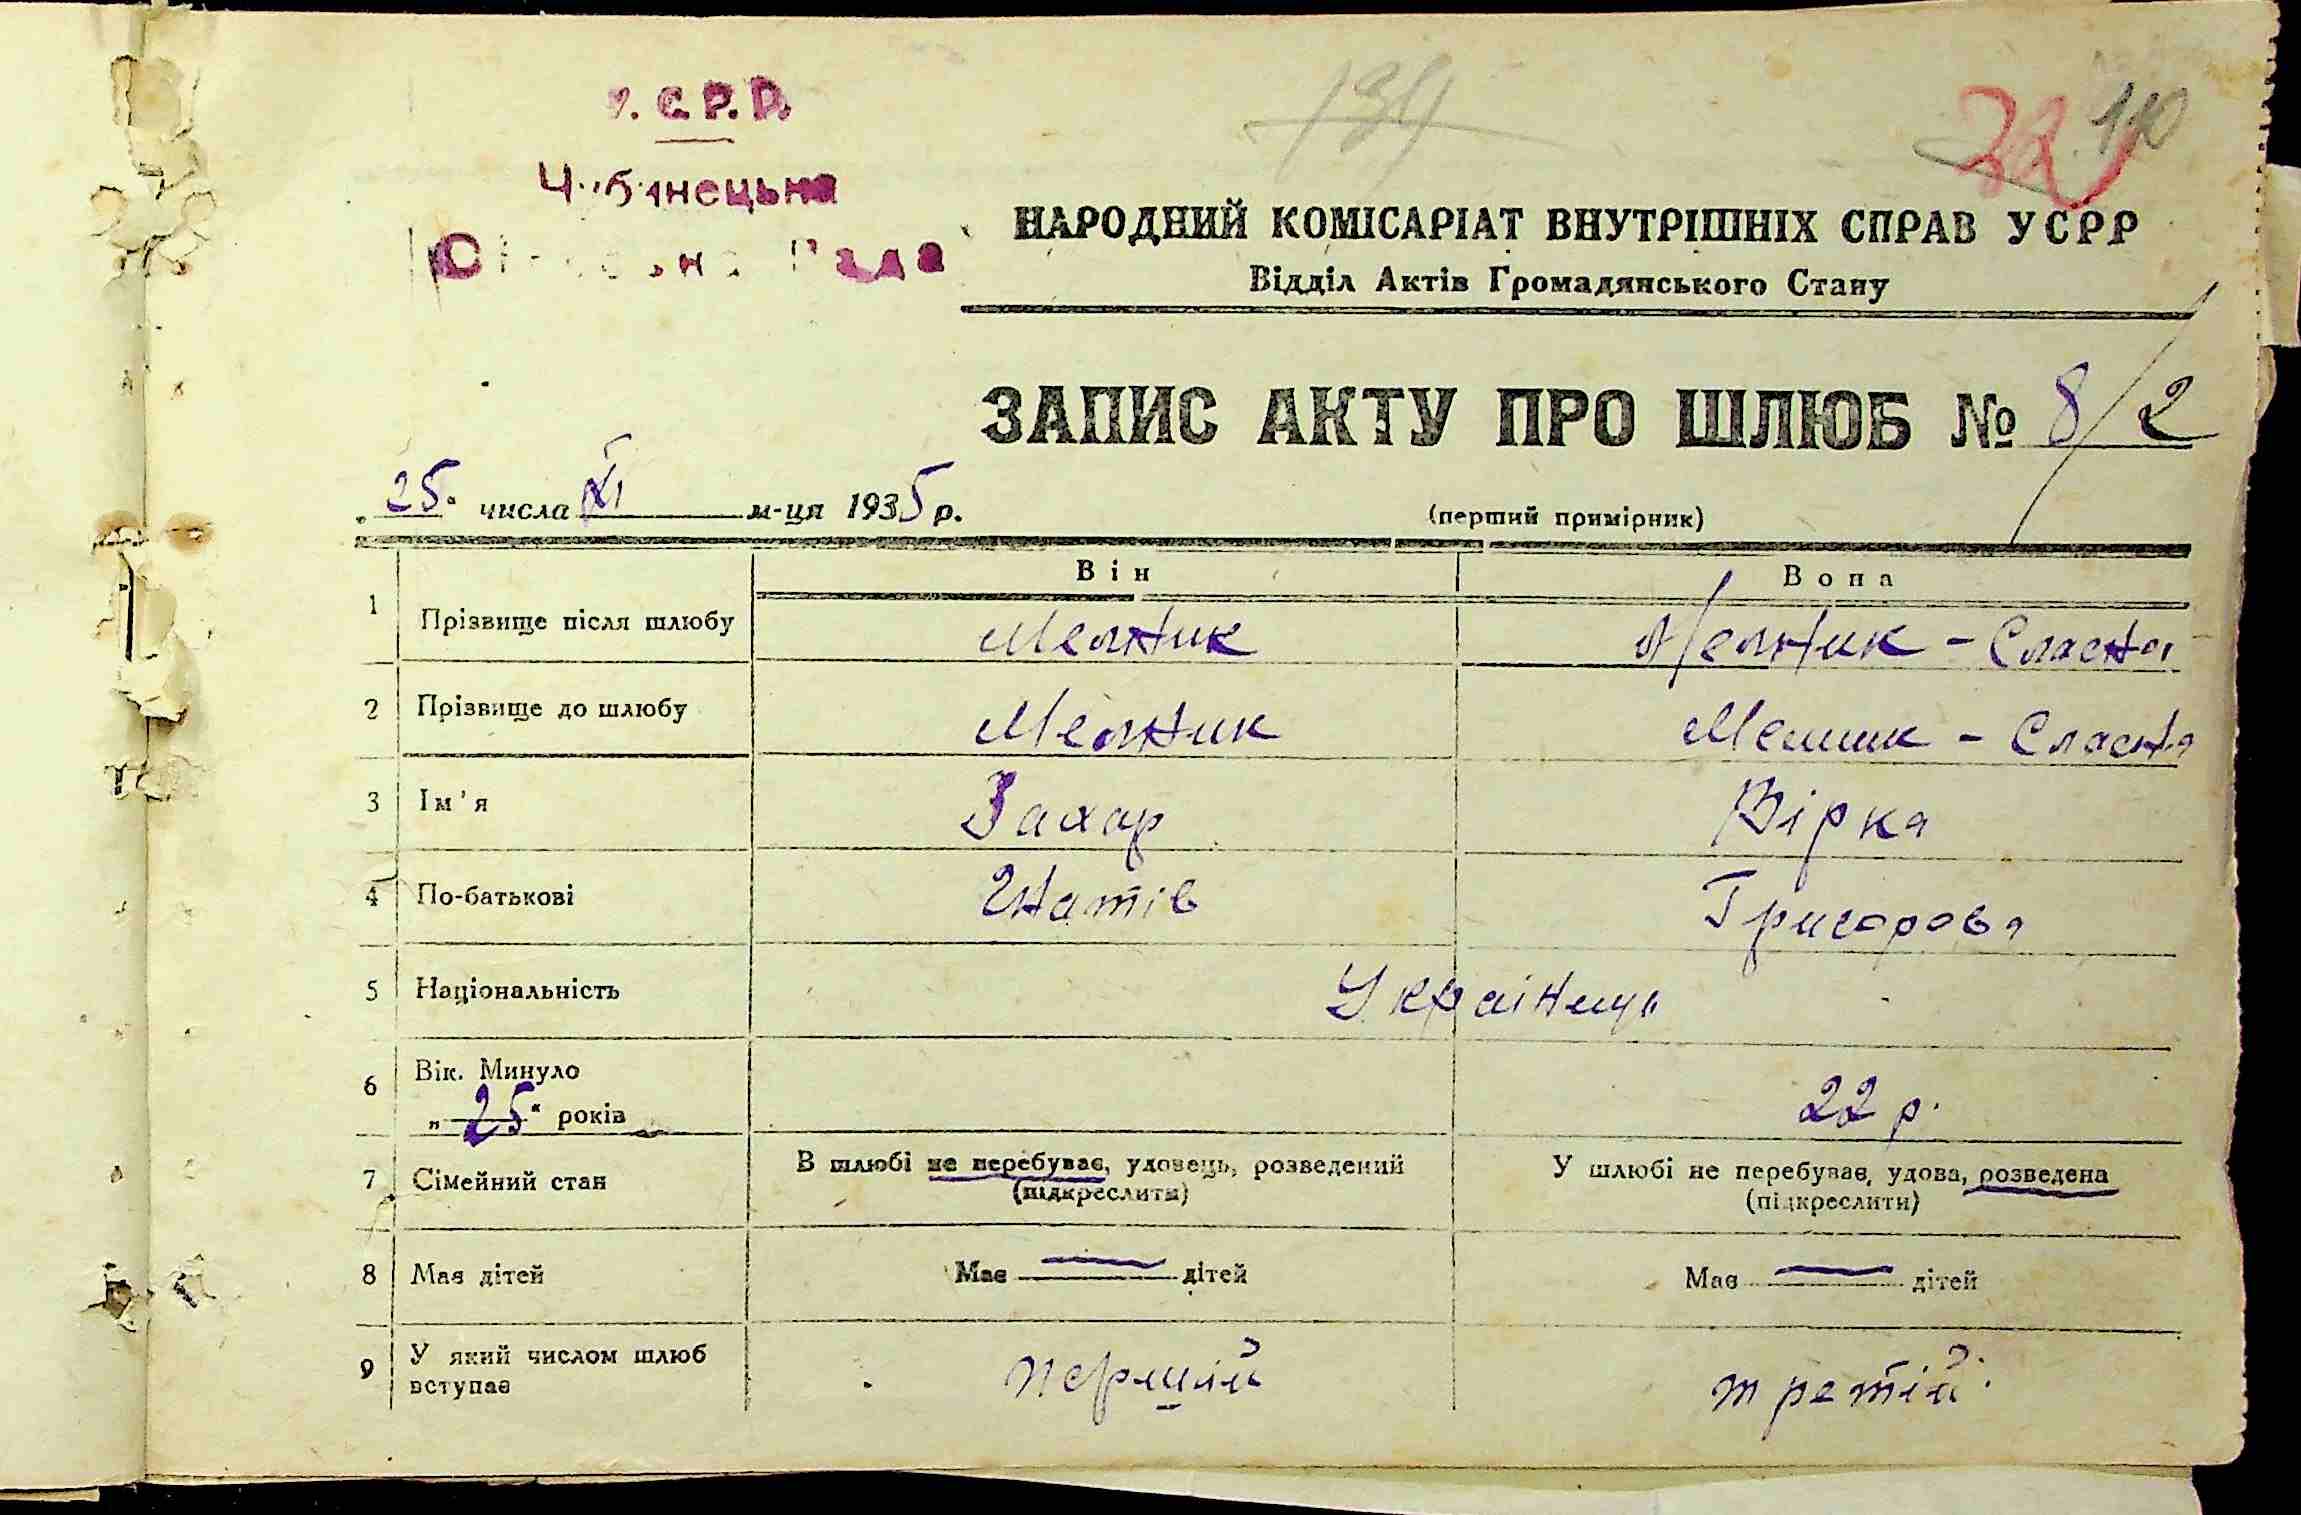 С.Р.Р.
139
110
НАРОДНИЙ КОМІСАРІАТ ВНУТРІШНІХ СПРАВ УСРР
Відділ Актів Громадянського Стану
ЗАПИС АКТУ ПРО ШЛЮБ № 8/2
25 числа XI м-ця 1935 р.
(перший примірник)
Він Вона
1 Прізвище після шлюбу Мелник Мелник - Сласна
2 Прізвище до шлюбу Мелник Мелник - Сласна
3 Ім'я Захар Вірка
4 По-батькові Гнатів Григорова
5 Національність Українці
6 Вік. Минуло
„25“ років 22 р.
7 Сімейний стан В шлюбі не перебуває, удовець, розведений У шлюбі не перебуває, удова, розведена
(підкреслити) (підкреслити)
8 Має дітей Має — дітей Має — дітей
9 У який числом шлюб вступає перший третій